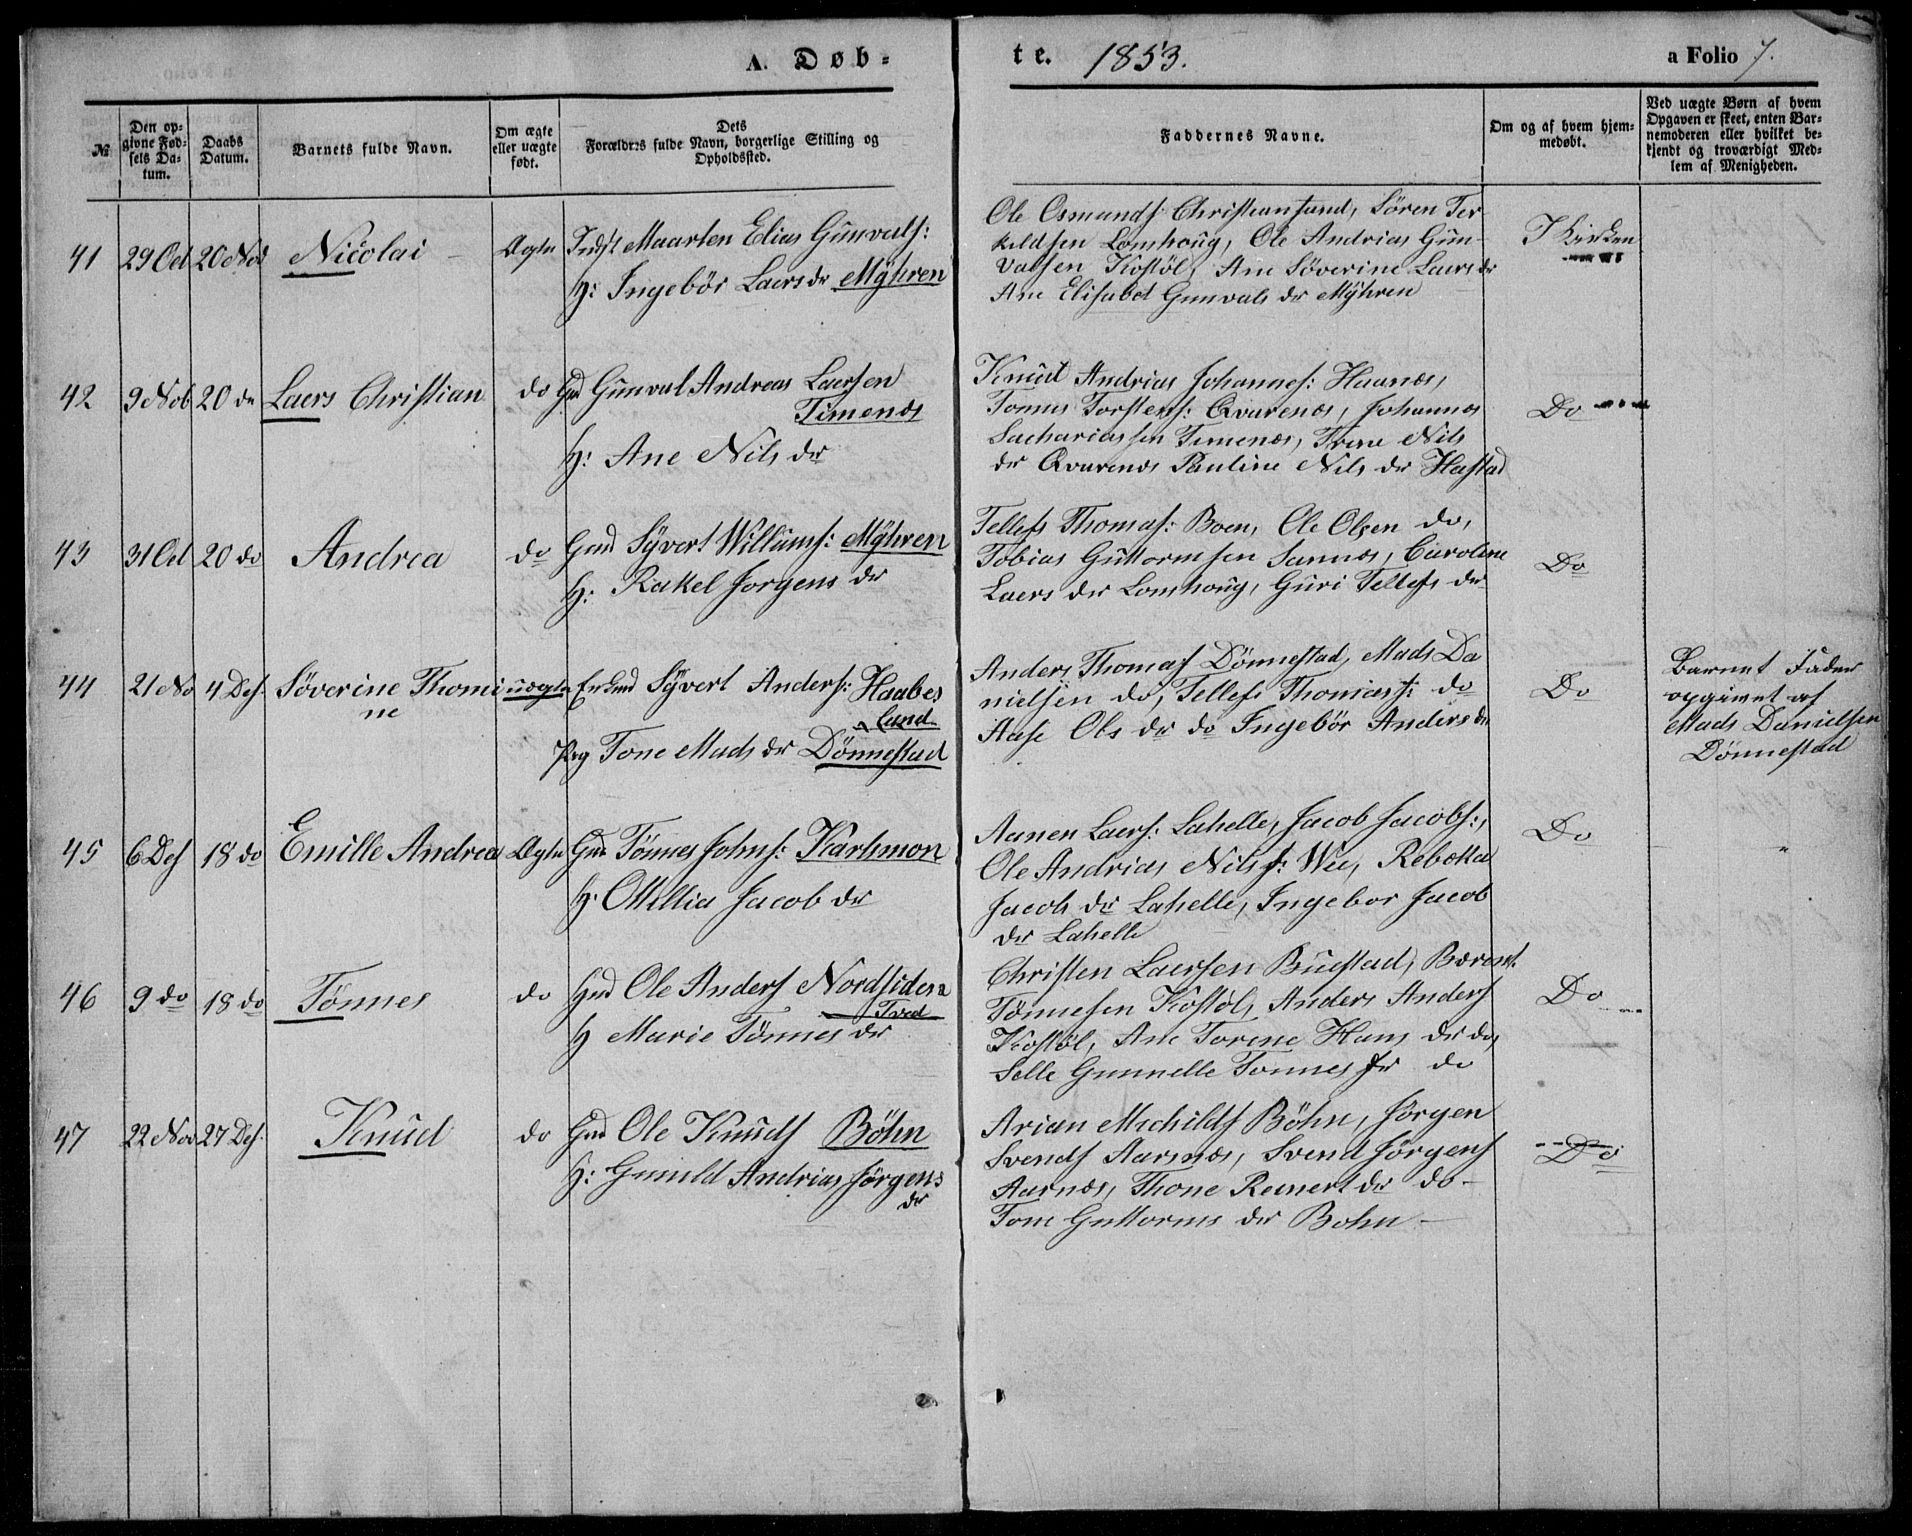 A. Døb=
te. 1853. a Folio 7.
№
Den op-
givne Fød-
sels Da-
tum.
Daabs
Datum.
Barnets fulde Navn.
Om ægte
eller uægte
født.
Dets
Forældres fulde Navn, borgerlige Stilling og
Opholdssted.
Faddernes Navne.
Om og af hvem hjem-
medøbt.
Ved uægte Børn af hvem
Opgaven er skeet, enten Bar-
nemoderen eller hvilket be-
kjendt og troværdigt Med-
lem af Menigheden.
41 29 Oct 20 Nov Nicolai Ægte Indst Maarten Elias Gunvals:
H: Ingebör Laers dr Mÿhren
Ole Osmunds Christiansand, Sören Ter
kildsen Lomhoug, Ole Andrias Gun-
valsen Kostöl, Ane Söverine Laers dr
Ane Elisabet Gunvals dr Mÿhren
I Kirken
42 9 Nob 20 do Laers Christian do Gmd Gunval Andreas Laersen
Timenæs
H: Ane Nils dr
Knud Andrias Johannes: Haanæs,
Tomas Torstens: Qvarenæs, Johannes
Sachariassen Timenæs, Trine Nils
dr Qvarenæs Pauline Nils dr Hastad
Do
43 31 Oct 20 do Andrea do Gmd Sÿvert Willums: Mÿhren
H: Rakel Jorgens dr
Tellefs Thomas: Boen, Ole Olsen do,
Tobias Guttormsen Sannæs, Caroline
Laers dr Lomhoug, Guri Tellefs dr
Do
44 21 No 4 Des. Söverine Thomi
ne
uægte Enkmd Sÿvert Anders: Haabes
land
Pig Tone Mads dr Dönnestad
Anders Thomas Dönnestad, Mads Da
nielsen do, Tellefs Thomas: do
Aase Ols dr do Ingebör Anders dr
Do
Barnet Fader
opgivet af
Mads Danielsen
Dönnestad
45 6 Des 18 do Emille Andrea Ægte Gmd Tönnes Johns: Karhmon
H: Ottillia Jacob dr
Aanen Laers: Lahelle, Jacob Jacobs:,
Ole Andrias Nils: Wee, Rebekka
Jacob dr Lahelle, Ingebor Jacob
dr Lahelle
Do
"
46 9 do 18 do Tönnes do Gmd Ole Anders Nordsiden
Tved
H Marie Tönnes dr
Christen Laersen Buestad, Bærent
Tönnesen Kostöl, Anders Anders
Kostöl, Ane Torine Hans dr do,
Selle Gunnelle Tonnes dr do
Do
47 22 Nov 27 Des. Knud do Gmd Ole Knuds Böhn
H: Gunild Andrias Jörgens
dr
Arian Michilds Böhn, Jörgen
Svends Aarnæs, Svend Jörgens
Aarnæs, Thone Reinert dr do-
Tone Guttorms dr Bohn -
Do